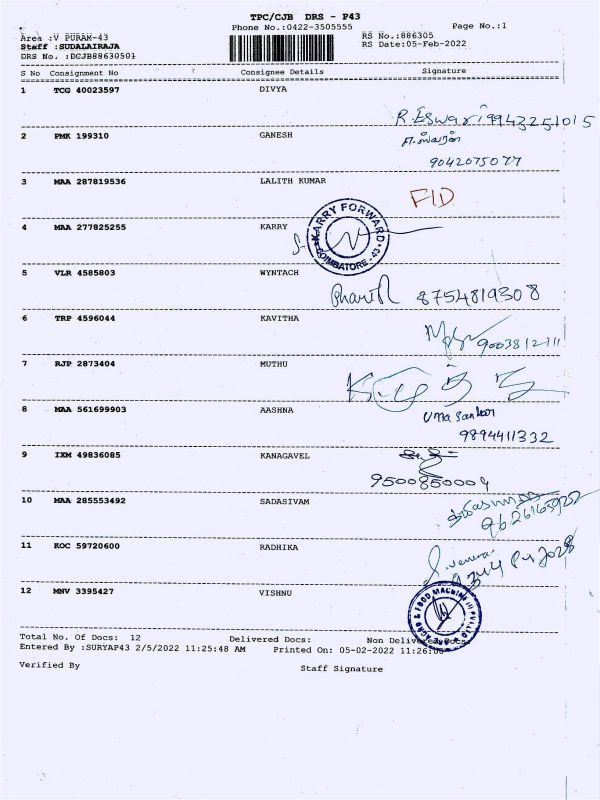 TPC/CJB DRS - P43
Phone No.:0422-3505555
Page No.:1
Area :V PURAM-43
RS No.:886305
Staff :SUDALAIRAJA
RS Date:05-Feb-2022
DRS No. :DCJB88630501
S No Consignment No Consignee Details Signature
1 TCG 40023597 DIVYA
R.Eswari 9943251015
2 PMK 199310 GANESH
9042075077
3 MAA 287819536 LALITH KUMAR
FID
4 MAA 277825255 KARRY
KARRY FORWARD
COIMBATORE - 43
5 VLR 4585803 WYNTACH
8754819308
6 TRP 4596044 KAVITHA
7 RJP 2873404 MUTHU
8 MAA 561699903 AASHNA
Uma Sankar
9894411332
9 IXM 49836085 KANAGAVEL
9500850004
10 MAA 285553492 SADASIVAM
11 KOC 59720600 RADHIKA
12 MNV 3395427 VISHNU
Total No. Of Docs: 12 Delivered Docs: Non Delivered Docs:
Entered By :SURYAP43 2/5/2022 11:25:48 AM Printed On: 05-02-2022 11:26:00
Verified By Staff Signature